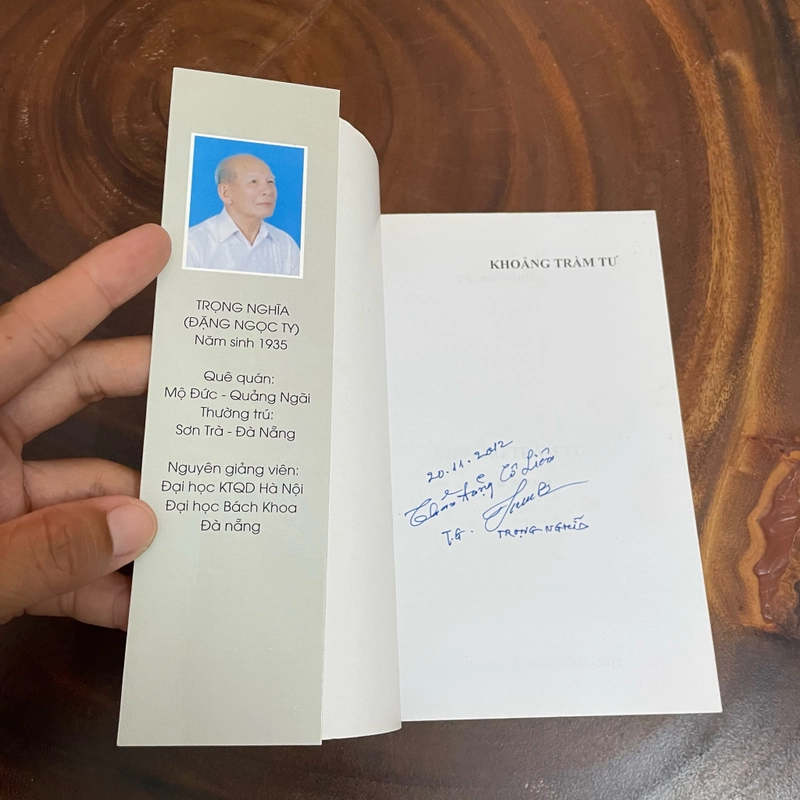 TRỌNG NGHĨA
(ĐẶNG NGỌC TY)
Năm sinh 1935
Quê quán:
Mộ Đức - Quảng Ngãi
Thường trú:
Sơn Trà - Đà Nẵng
Nguyên giảng viên:
Đại học KTQD Hà Nội
Đại học Bách Khoa
Đà nẵng
KHOẢNG TRẦM TƯ
20.11.2012
Thân tặng Cô Liên
T.G. TRỌNG NGHĨA